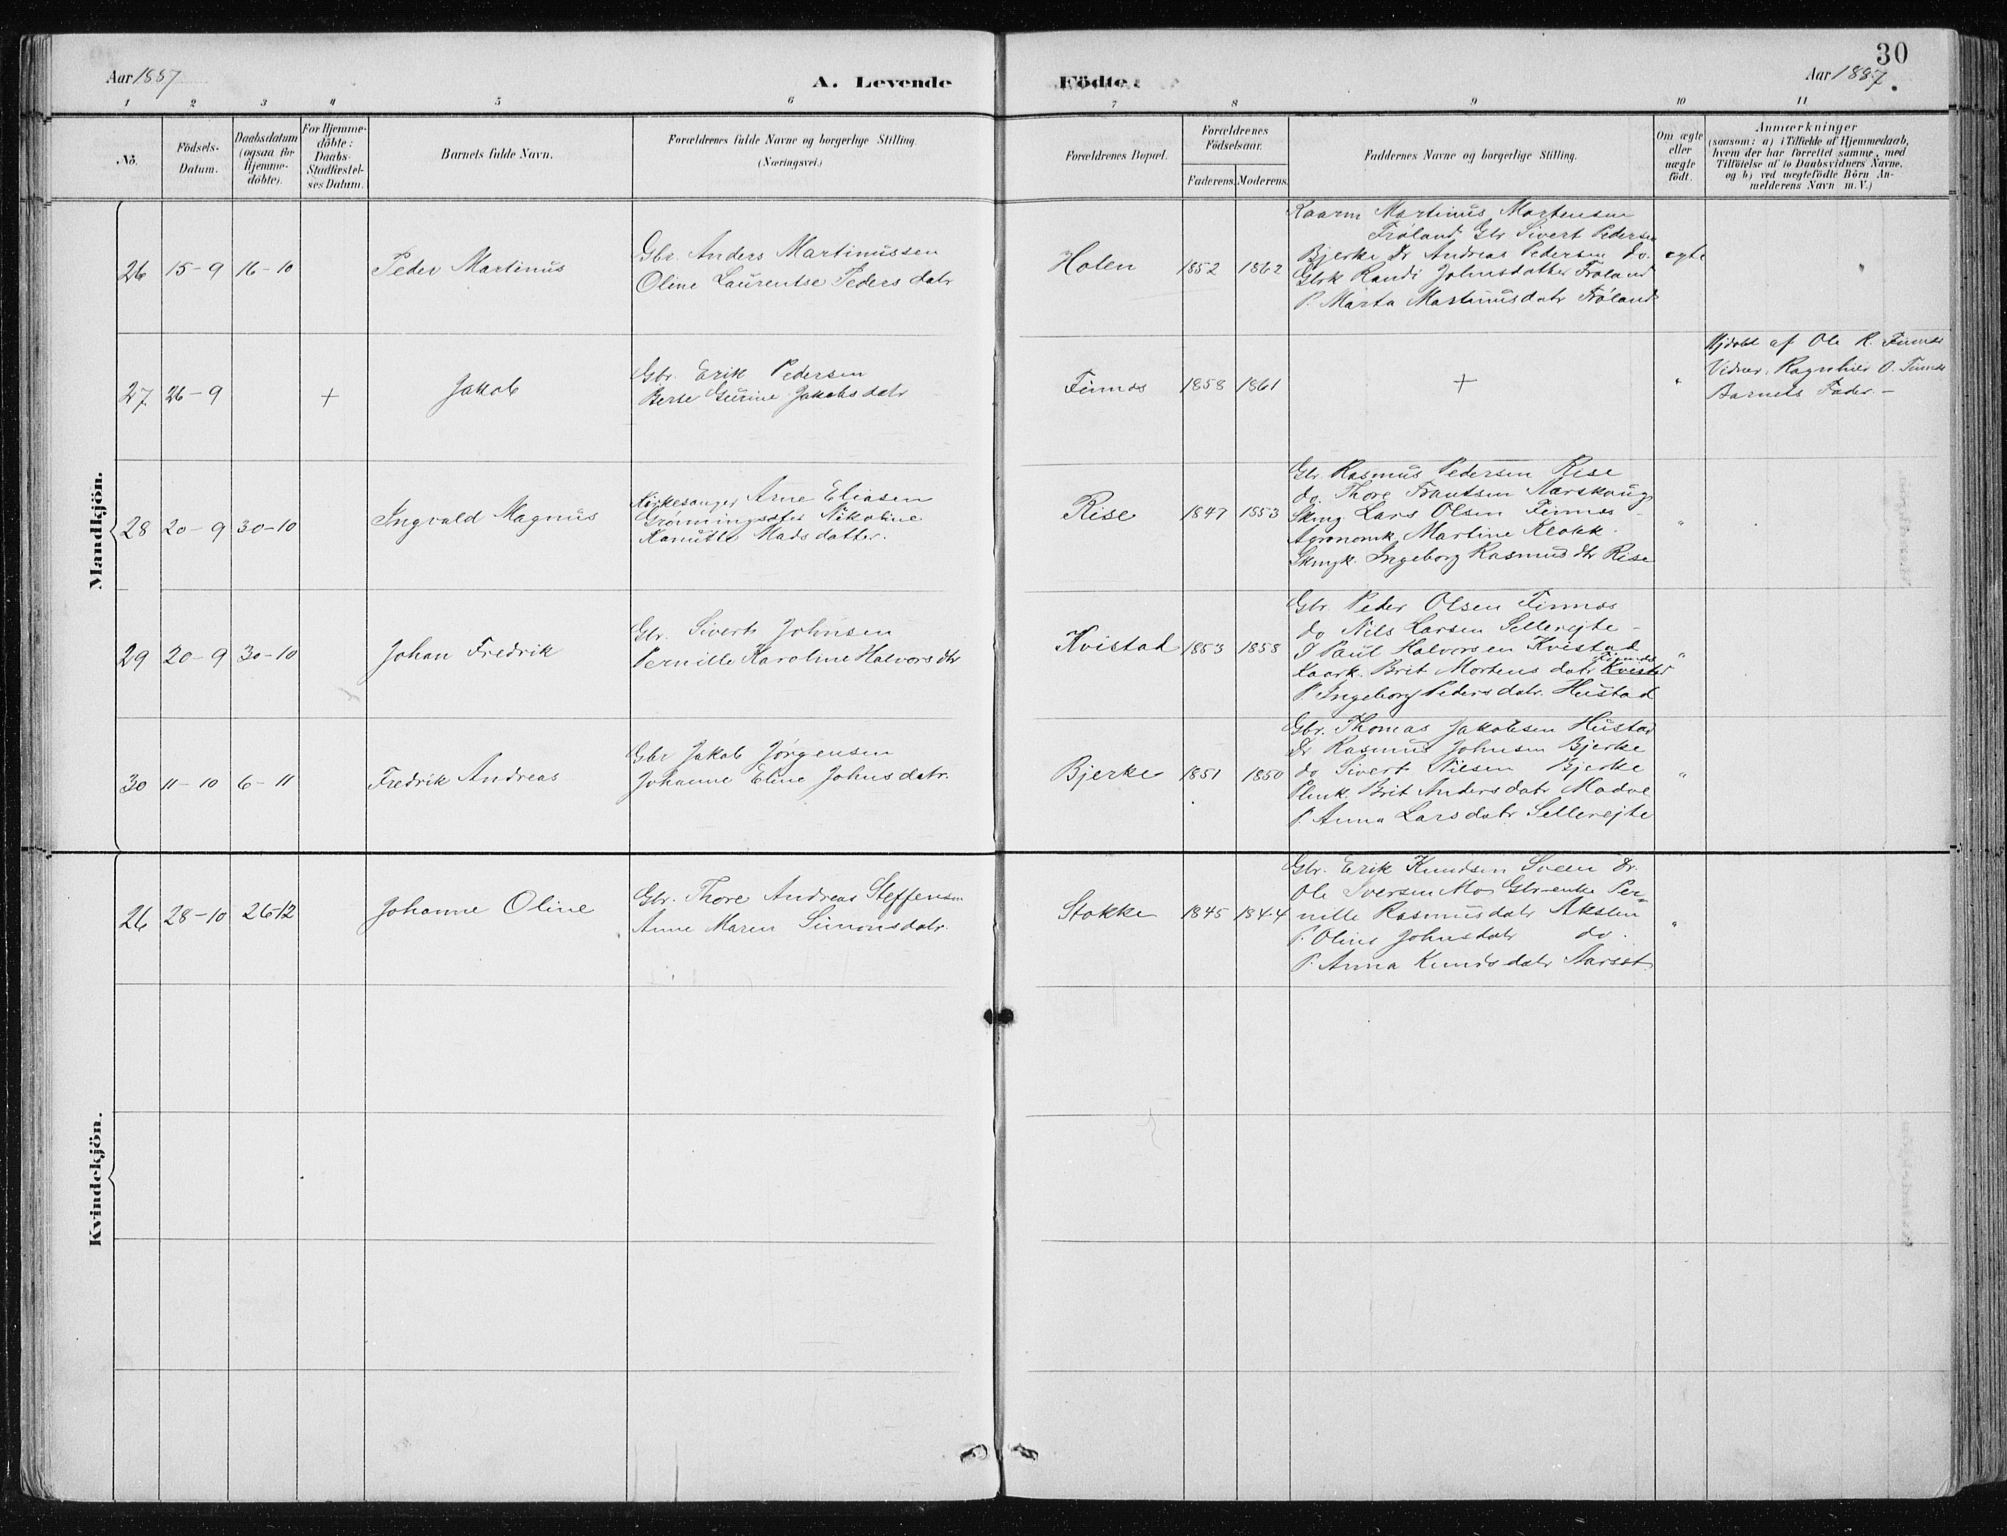 30
Aar 1887
A. Levende
Födte.
Aar 1887.
1 2 3 4 5 6 7 8 9 10 11
No.
Födsels-
Datum.
Daabsdatum
(ogsaa for
Hjemme-
döbte).
For Hjemme-
döbte:
Daabs-
Stadfæstel-
ses Datum.
Barnets fulde Navn.
Forældrenes fulde Navne og borgerlige Stilling
(Næringsvei.)
Forældrenes Bopæl.
Forældrenes
Födselsaar.
Faderens. Moderens.
Faddernes Navne og borgerlige Stilling.
Om ægte
eller
uægte
født.
Anmærkninger
(saasom: a) i Tilfælde af Hjemmedaab,
hvem der har forrettet samme, med
Tilföielse af to Daabsvidners Navne,
og b) ved uægtefödte Börn An-
melderens Navn m.V.)
Mandkjön.
26 15-9 16-10
Peder Martinus
Gbr. Anders Martinussen
Oline Laurentse Pedersdatr
Holen 1852 1862
Kaarm Martinus Mortensen
Fröland Gbr Sivert Pedersen
Bjerke Dr Andreas Pedersen do.
Gbrk Randi Johnsdatter Fröland
P. Marta Martinusdatr Fröland
ægte
27 26-9 +
Jakob
Gbr. Erik Pedersen
Berte Gurine Jakobsdatr
Finnes 1858 1861
+
"
Hjdöbt af Ole R. Finnes
Vidner, Ragnhild O. Finnes
Barnets Fader. -
28 20-9 30-10
Ingvald Magnus
Kirkesanger Arne Eliasen
Grönningsæter Nikoline
Kanutte Madsdatter.
Rise 1847 1853
Gbr. Rasmus Pedersen Rise
do. Thore Frantsen Aarskoug
Skmg Lars Olsen Finnes
Agronomk Martine Klokk.
Skmgk. Ingeborg Rasmusdtr Rise
"
29 20-9 30-10
Johan Fredrik
Gbr. Sivert Johnsen
Pernille Karoline Halvorsdtr
Kvistad 1853 1858
Gbr. Peder Olsen Finnes
do Nils Larsen Sellereite -
P Paul Halvorsen Kvistad
Finnes
Kaark. Brit Mortensdatr Kvistad
P. Ingeborg Pedersdatr. Hustad
"
30 11-10 6-11
Fredrik Andreas
Gbr Jakob Jørgensen
Johanne Eline Johnsdatr.
Bjerke 1851 1850
Gbr. Thomas Jakobsen Hustad
Dr Rasmus Johnsen Bjerke
do Sivert Nilsen Bjerke
Plmk. Brit Andersdatr Madve
P. Anna Larsdatr Sellerejte
"
Kvindekjön.
26 28-10 26-12
Johanne Oline
Gbr. Thore Andreas Steffensen
Anne Maren Simonsdatr.
Stokke 1845 1844
Gbr. Erik Knudsen Sveen Dr.
Ole Iversen Mo Gbr-enke Per-
nille Rasmusdatr Akslen
P. Oline Johnsdatr do.
P. Anna Knudsdatr Aarset
"